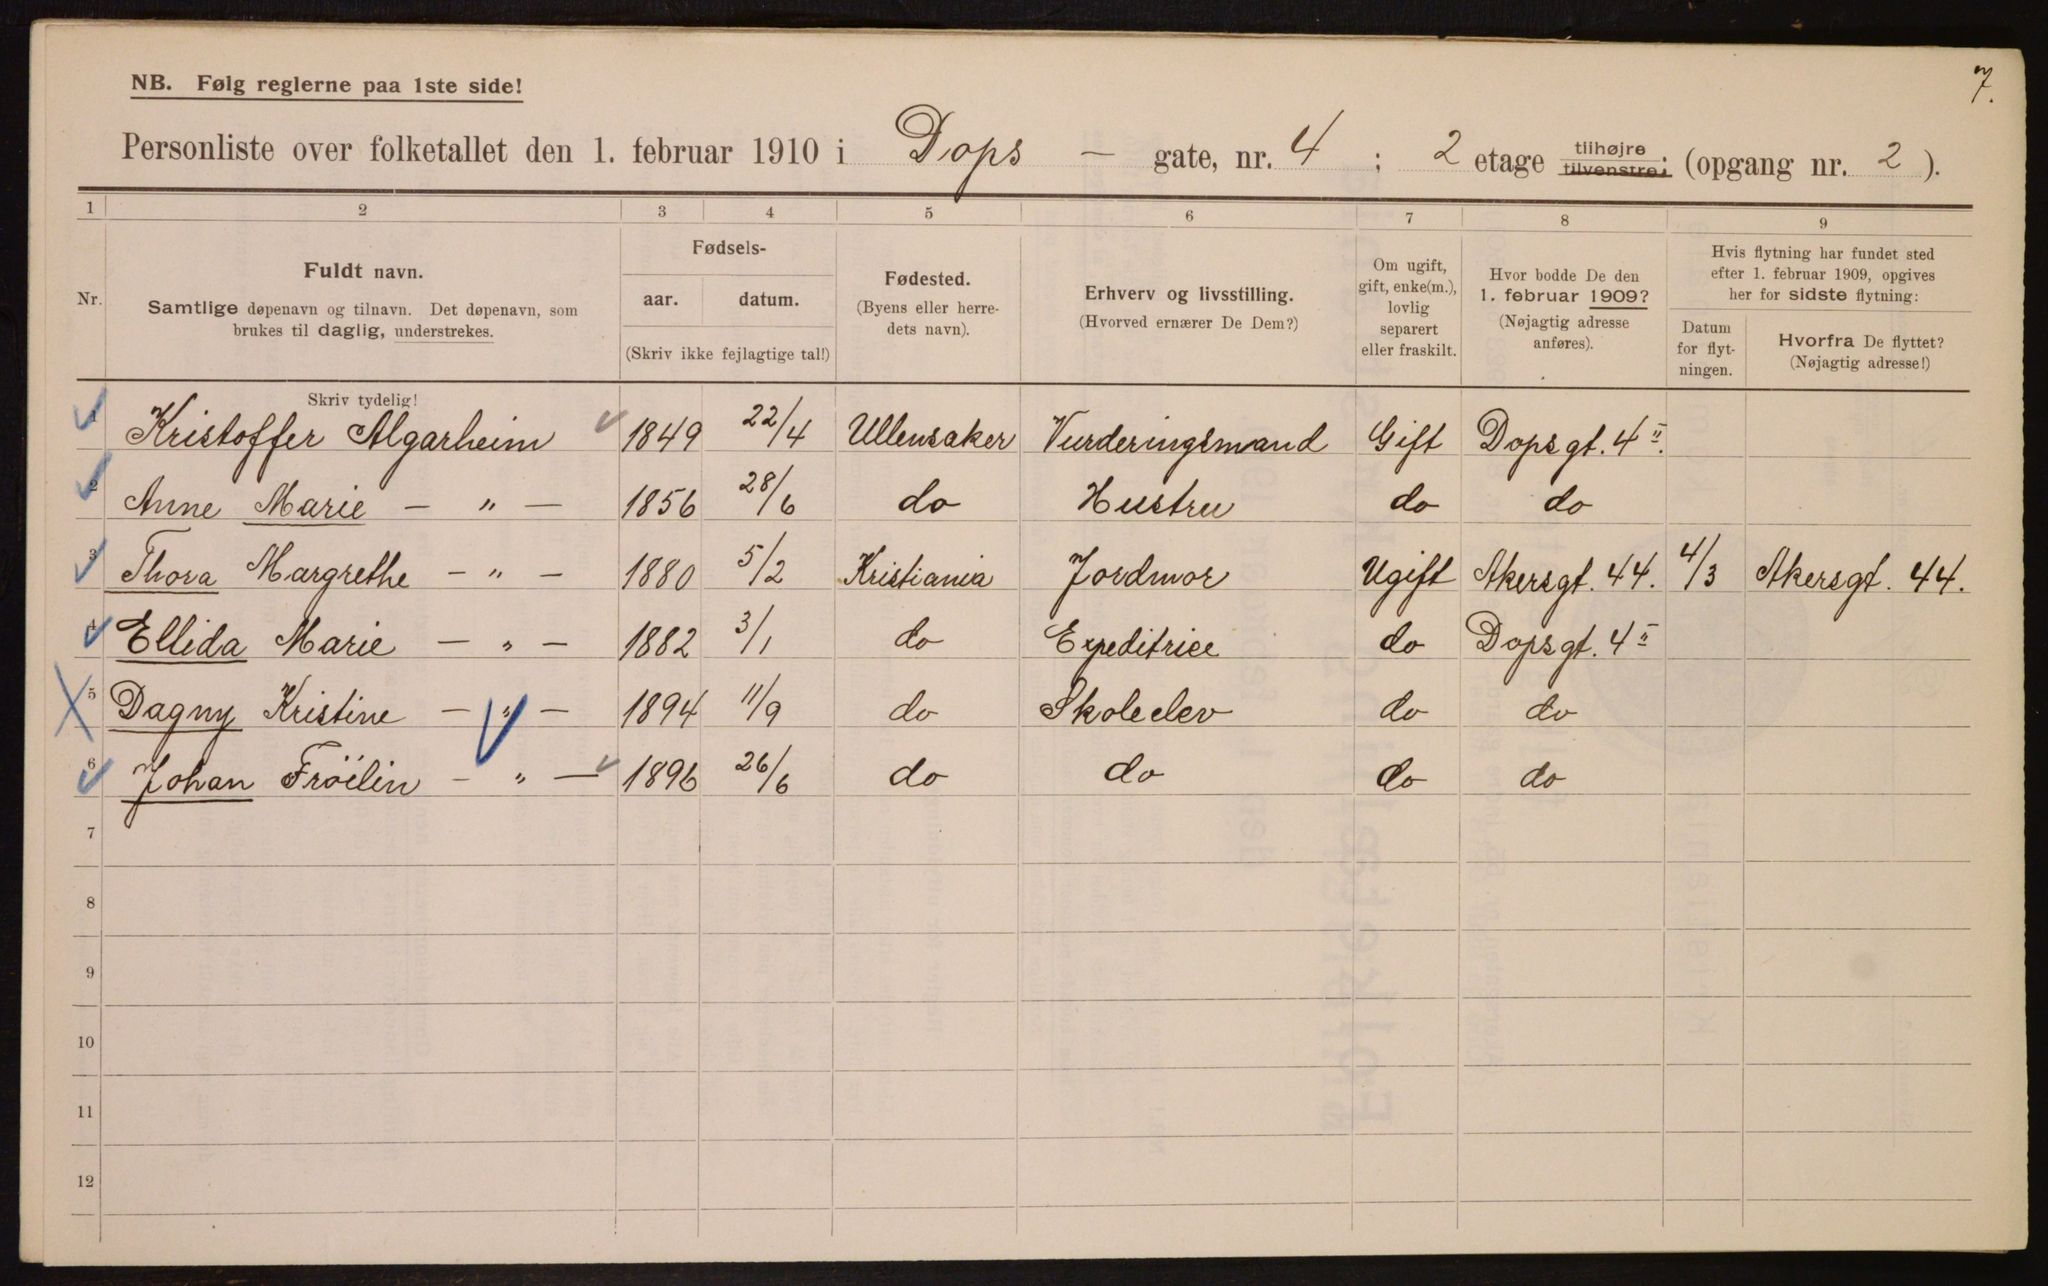 7.
NB. Følg reglerne paa 1ste side!
Personliste over folketallet den 1. februar 1910 i Dops — gate, nr. 4 ; 2 etage tilhøjre tilvenstre; (opgang nr. 2 ).
1 2 3 4 5 6 7 8 9
Nr.
Fuldt navn.
Samtlige døpenavn og tilnavn. Det døpenavn, som
brukes til daglig, understrekes.
Fødsels-
aar. datum.
(Skriv ikke fejlagtige tal!)
Fødested.
(Byens eller herre-
dets navn).
Erhverv og livsstilling.
(Hvorved ernærer De Dem?)
Om ugift,
gift, enke(m.),
lovlig
separert
eller fraskilt.
Hvor bodde De den
1. februar 1909?
(Nøjagtig adresse
anføres).
Hvis flytning har fundet sted
efter 1. februar 1909, opgives
her for sidste flytning:
Datum
for flyt-
ningen.
Hvorfra De flyttet?
(Nøjagtig adresse!)
Skriv tydelig!
1 Kristoffer Algarheim 1849 22/4 Ullensaker Vurderingsmand Gift Dopsgt. 4 II.
2 Anne Marie — " — 1856 28/6 do Hustru do do
3 Thora Margrethe — " — 1880 5/2 Kristiania Jordmor Ugift Akersgt. 44. 4/3 Akersgt. 44.
4 Ellida Marie — " — 1882 3/1 do Expeditrice do Dopsgt. 4 II
5 Dagny Kristine — " — 1894 11/9 do Skoleelev do do
6 Johan Fröilin — " — 1896 26/6 do do do do
7
8
9
10
11
12